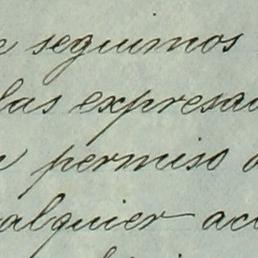 seguimos
las expresad
permiso
alquier acc